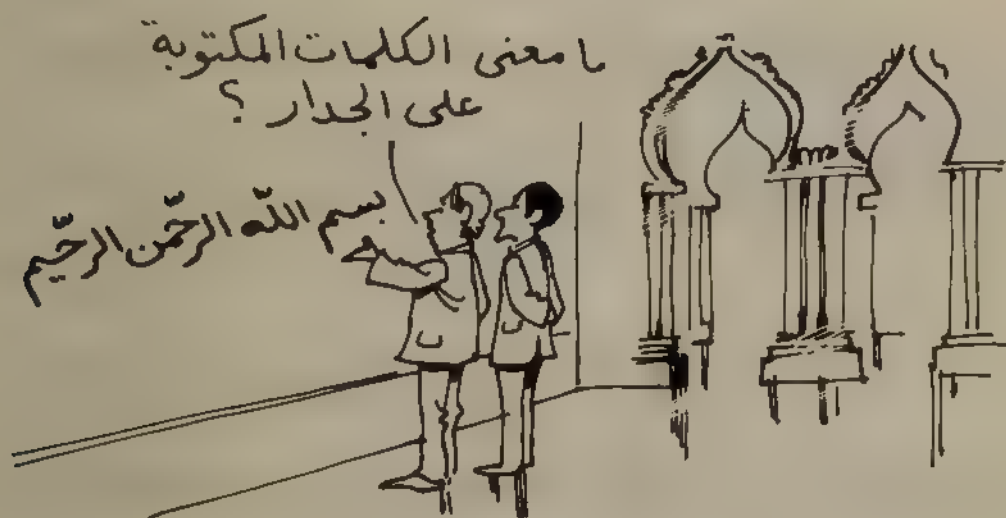 ما معنى الكلمات المكتوبة
على الجدار ؟
بسم اللّه الرحّمن الرحّيم